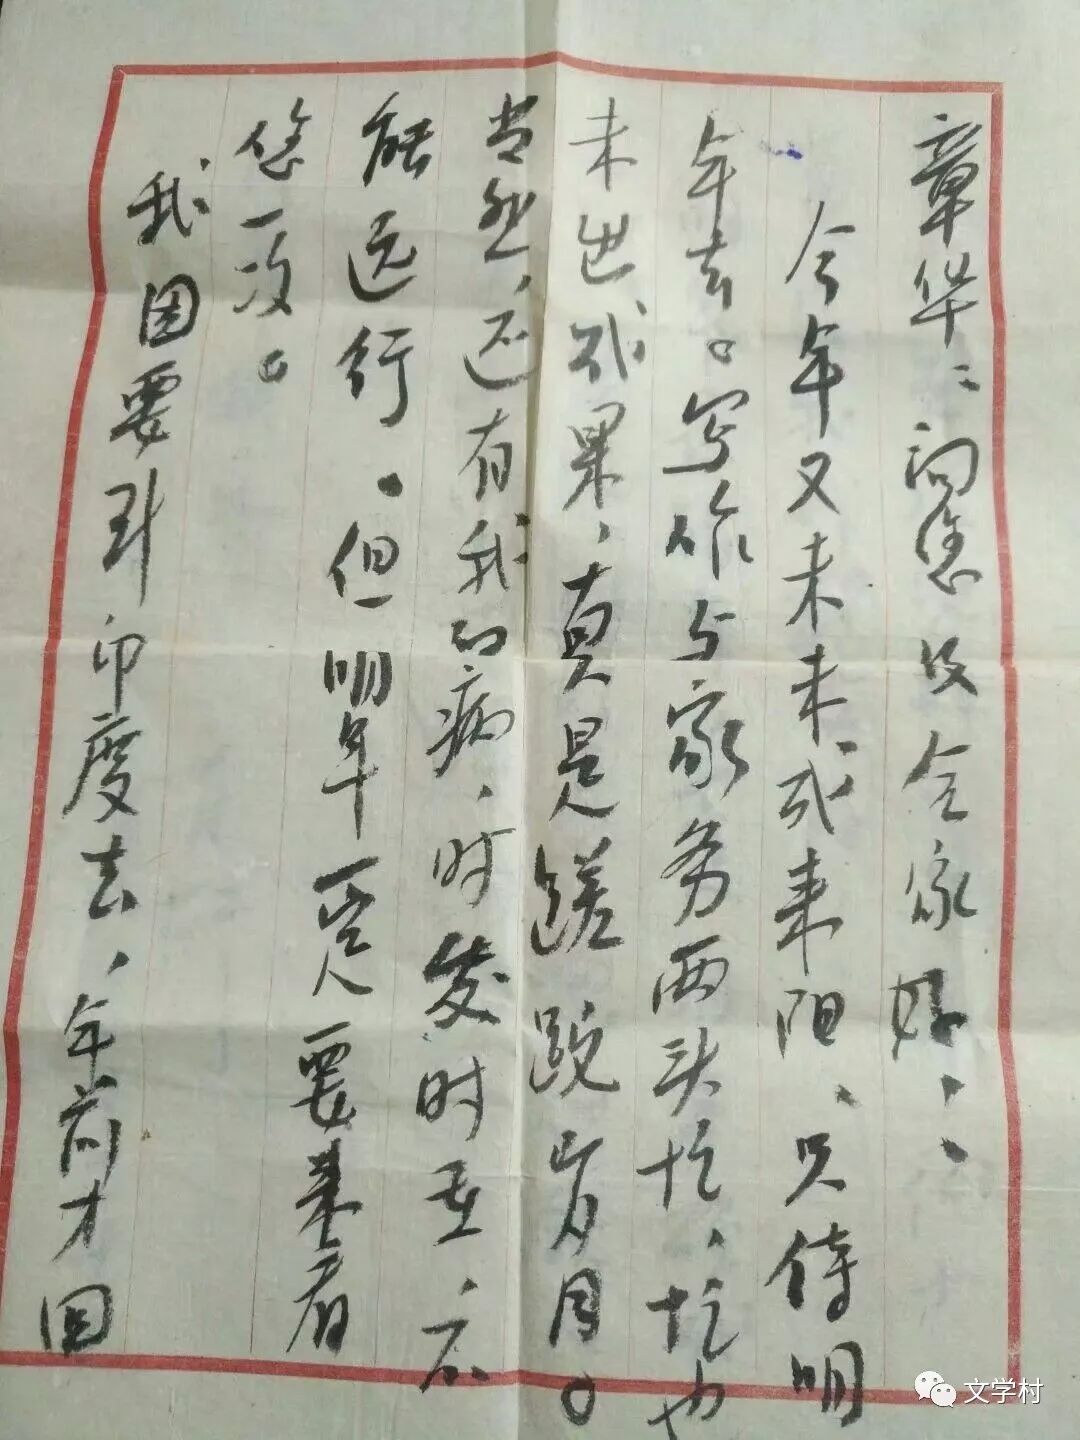 章华：问您及全家好！
今年又未未或来阻，只待明
年去。写作与家务两头忙，忙也
未出成果，真是蹉跎岁月。
当然，还有我的病，时发时重，不
能远行。但明年一定要来看
您一次。
我因要到印度去，年前才回
文学村